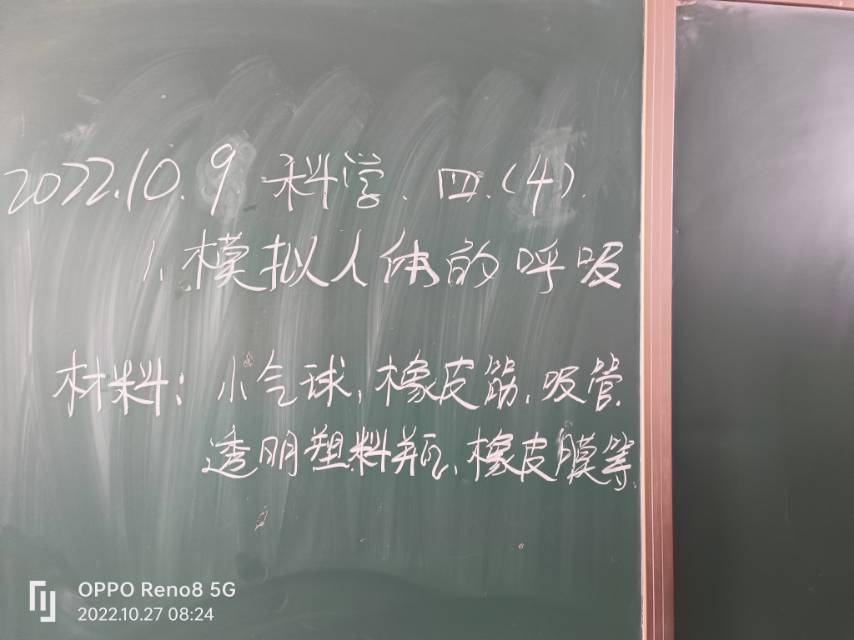 2022.10.9 科学、四.(4).
1、模拟人体的呼吸
材料：小气球、橡皮筋、吸管.
透明塑料瓶、橡皮膜等.
OPPO Reno8 5G
2022.10.27 08:24